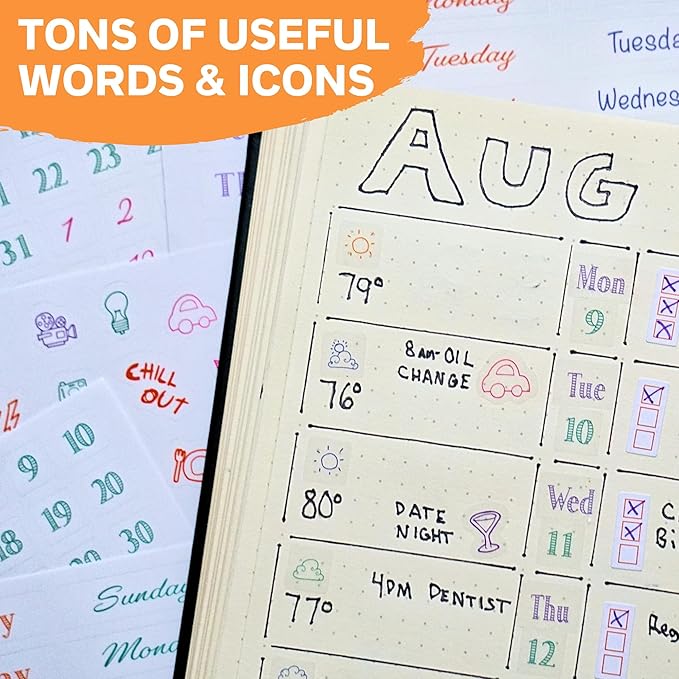 TONS OF USEFUL
WORDS & ICONS
Tuesday
Tuesda
Wednes
22 23
31 1 2
CHILL
OUT
9 10
18 19 20
30
Sunday
Mon
AUG
79°
Mon
9
76°
8AM-OIL
CHANGE
Tue
10
80°
DATE
NIGHT
Wed
11
77°
4PM DENTIST
Thu
12